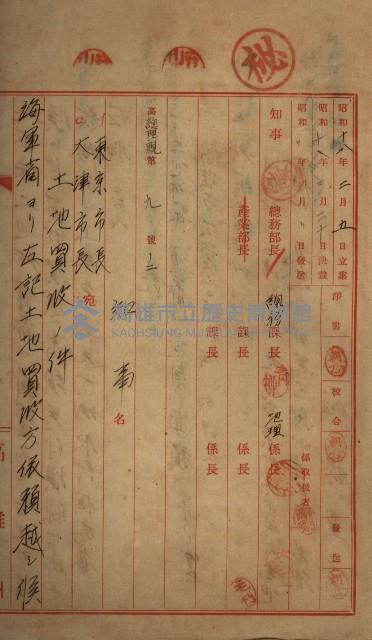 秘
昭和十八年二月五日立案 淨書 校合 發送
昭和十八年 月二十日決裁
昭和 年 月 日發送 係取扱者
知事 總務部長 總務課長 地理係長
産業部長 課長 係長
課長 係長
高總理親第九號ノ二
知事名
東京市長
大津市長 宛
土地買收ノ件
海軍省ヨリ左記土地買收方依賴越シ候
高雄市立歷史博物館
KAOHSIUNG MUSEUM OF HISTORY
高雄州